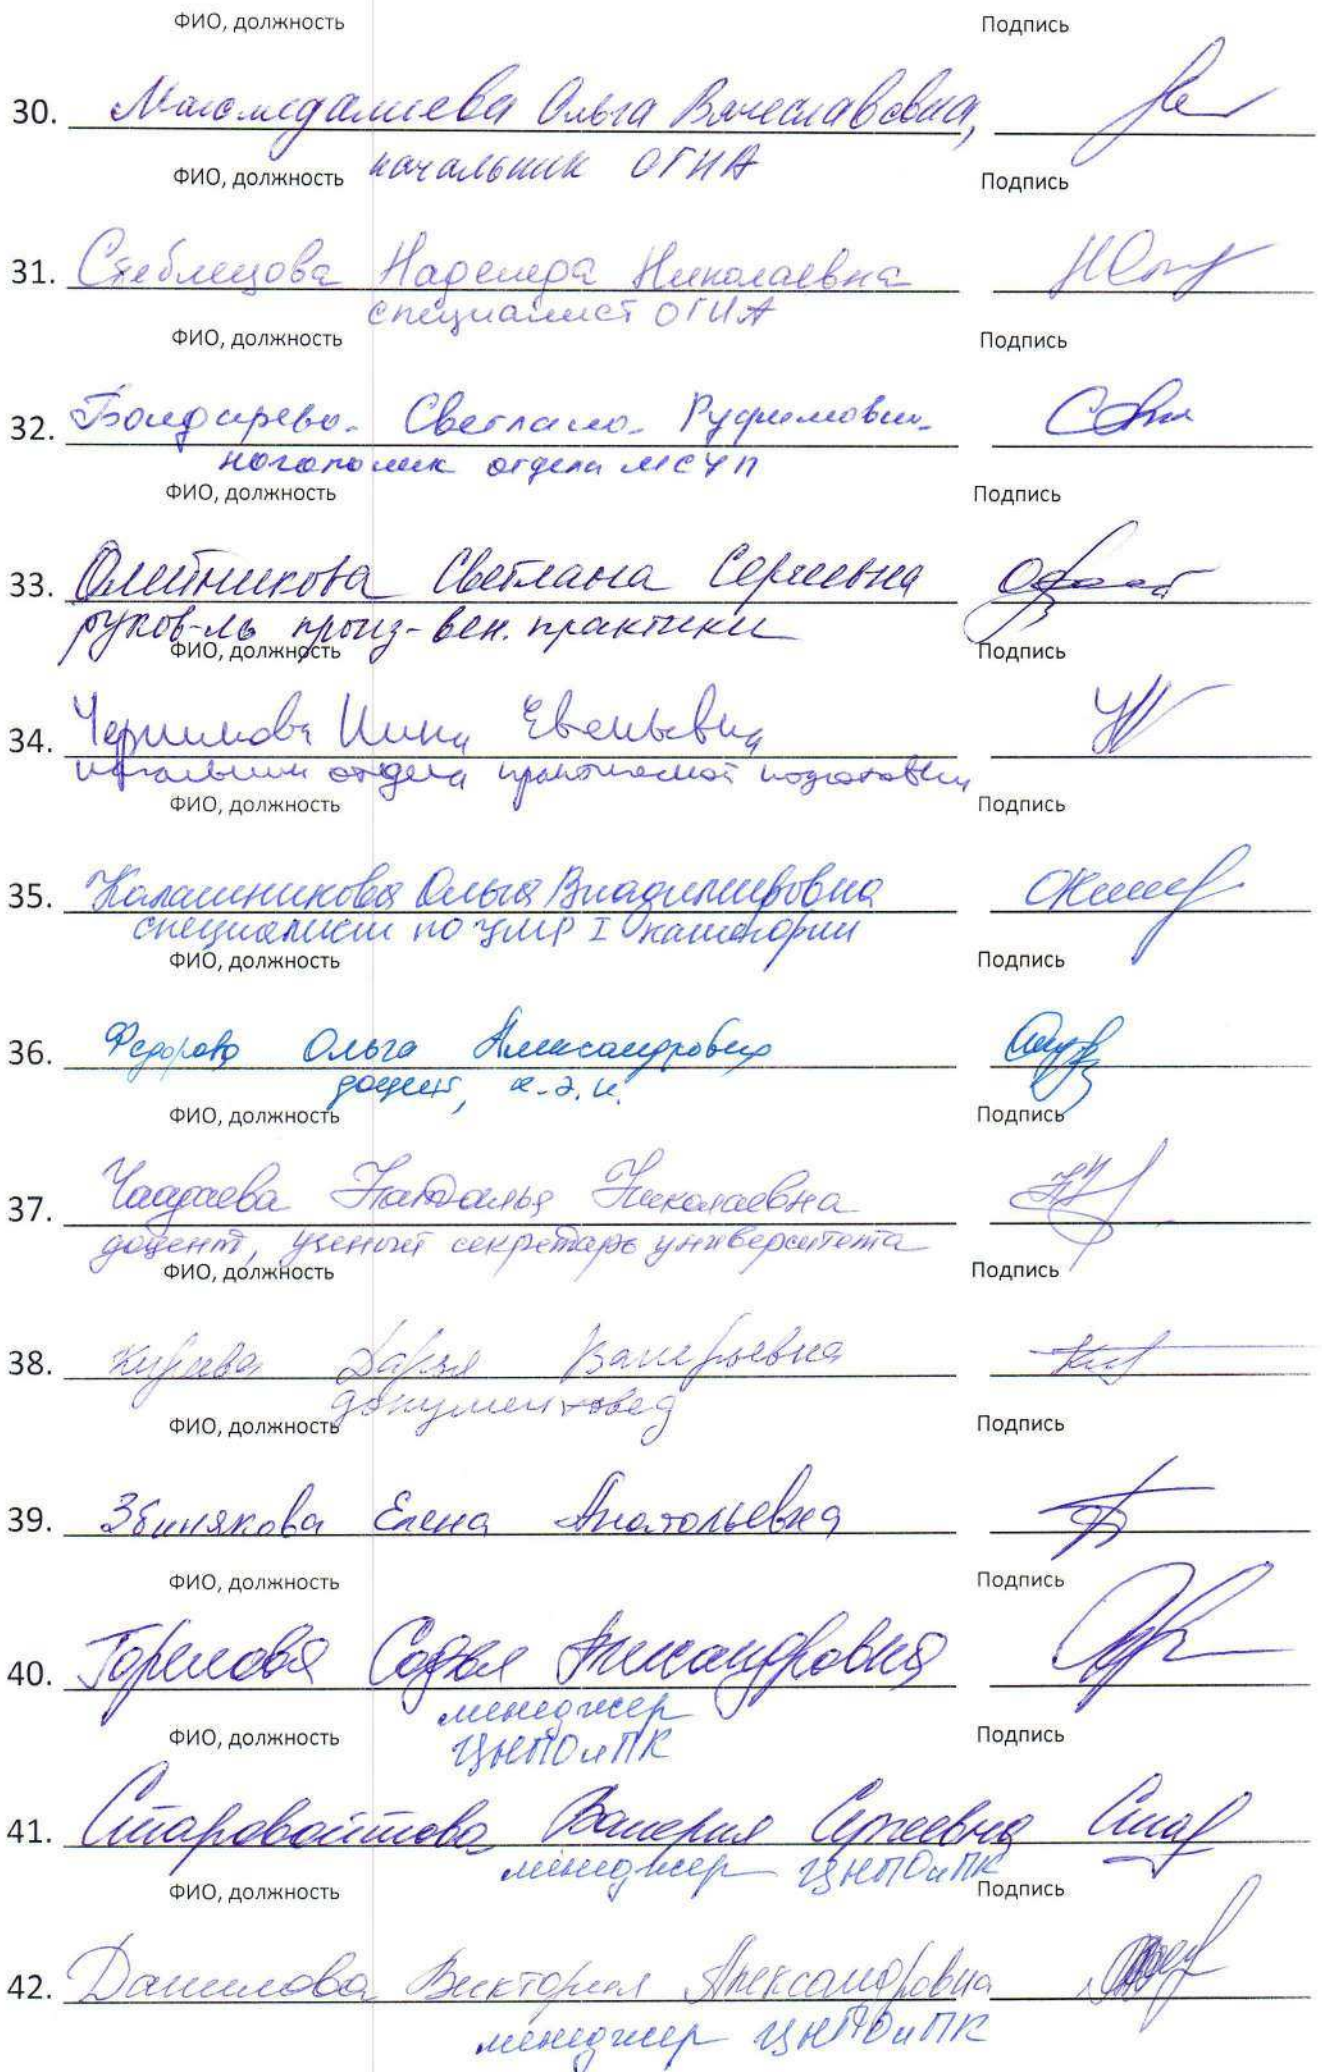 ФИО, должность Подпись
30. Ольга Вячеславовна,
начальник ОГИА
ФИО, должность Подпись
31. Стеблецова Надежда Николаевна
специалист ОГИА
ФИО, должность Подпись
32. Бондарева Светлана Руфимовна
отдела МСУП
ФИО, должность Подпись
33. Олейникова Светлана Сергеевна
руков-ль произ-вен. практики
ФИО, должность Подпись
34. Нина Евгеньевна
начальник отдела практической подготовки
ФИО, должность Подпись
35. Калашникова Ольга Владимировна
специалист по УМР I категории
ФИО, должность Подпись
36. Федорова Ольга Александровна
доцент, к.э.н.
ФИО, должность Подпись
37. Чаадаева Наталья Николаевна
доцент, ученый секретарь университета
ФИО, должность Подпись
38. Киреева Дарья Валерьевна
документовед
ФИО, должность Подпись
39. Збинякова Елена Анатольевна
ФИО, должность Подпись
40. Горелова Софья Александровна
менеджер
ЦНПОиПК
ФИО, должность Подпись
41. Старовойтова Валерия Сергеевна
менеджер ЦНПОиПК
ФИО, должность Подпись
42. Данилова Виктория Александровна
менеджер ЦНПОиПК